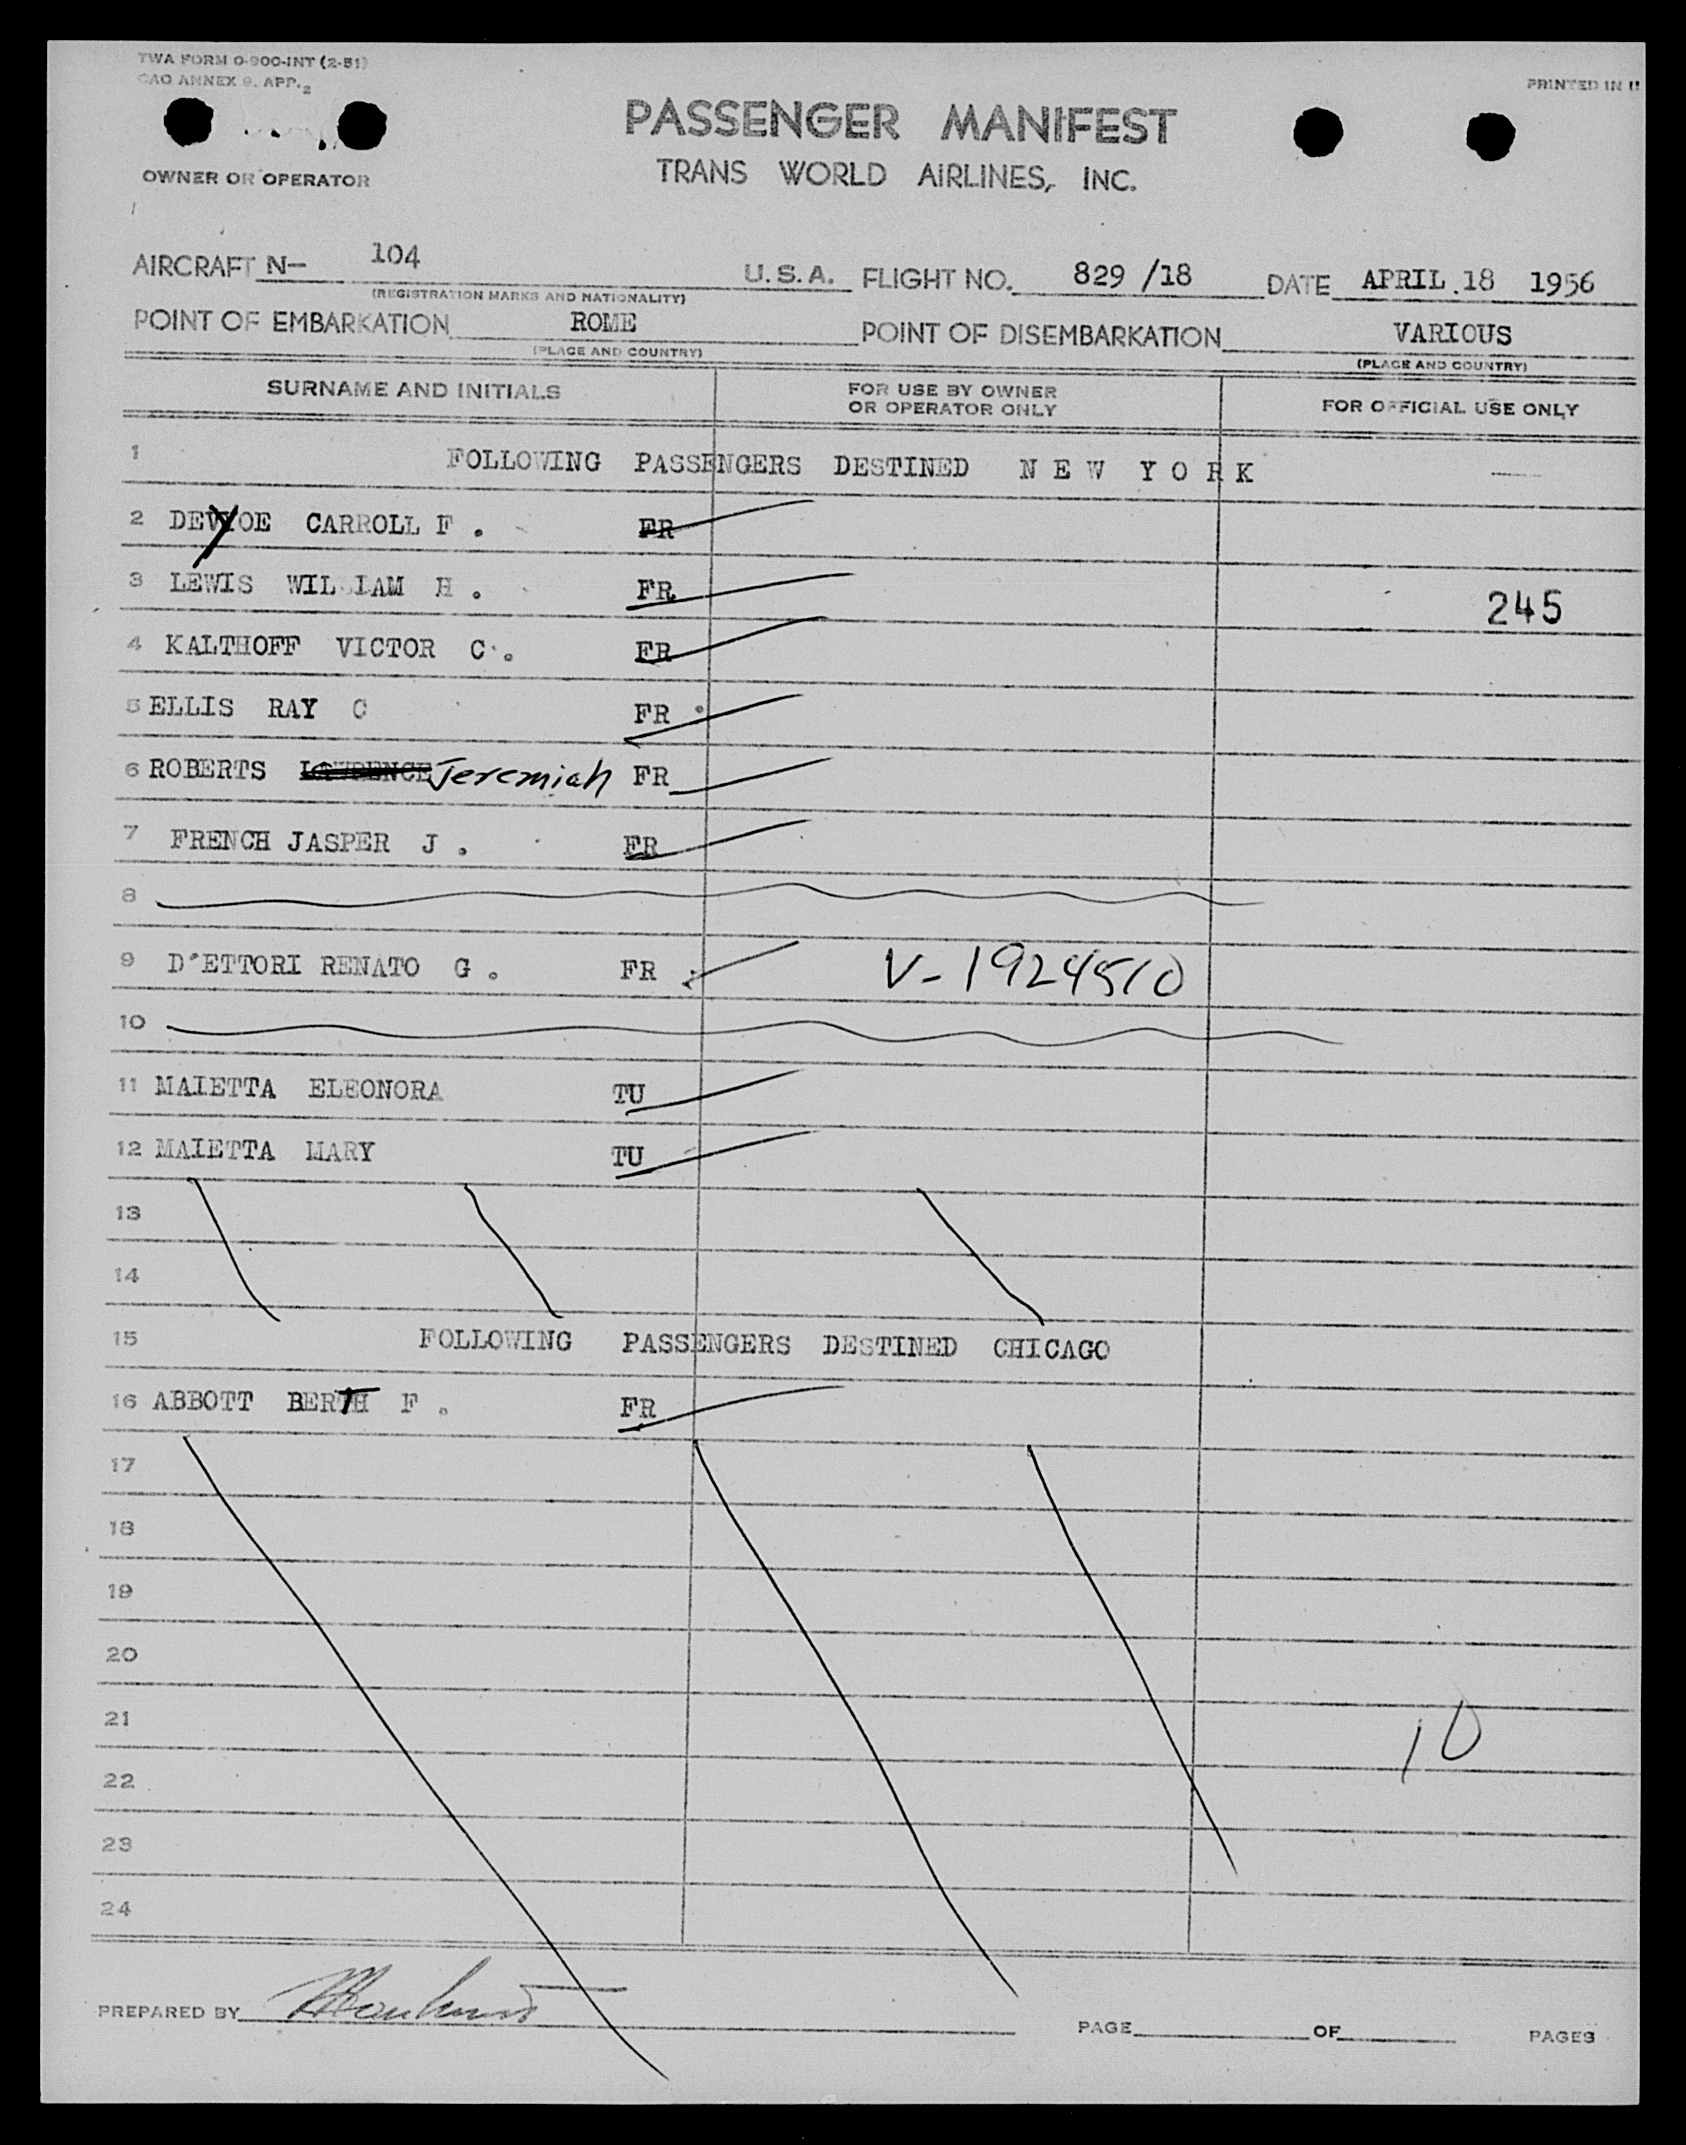 TWA FORM O-900-INT (2-51)
CAO ANNEX 9. APP. 2
PRINTED IN U
PASSENGER MANIFEST
TRANS WORLD AIRLINES, INC.
OWNER OR OPERATOR
AIRCRAFT N- 104 U.S.A. FLIGHT NO. 829 /18 DATE APRIL 18 1956
(REGISTRATION MARKS AND NATIONALITY)
POINT OF EMBARKATION ROME POINT OF DISEMBARKATION VARIOUS
(PLACE AND COUNTRY) (PLACE AND COUNTRY)
SURNAME AND INITIALS FOR USE BY OWNER OR OPERATOR ONLY FOR OFFICIAL USE ONLY
1 FOLLOWING PASSENGERS DESTINED N E W Y O R K
2 DEVYOE CARROLL F . FR
3 LEWIS WILLIAM H . FR 245
4 KALTHOFF VICTOR C . FR
5 ELLIS RAY C FR
6 ROBERTS LAWRENCE Jeremiah FR
7 FRENCH JASPER J . FR
8
9 D'ETTORI RENATO G . FR V-1924510
10
11 MAIETTA ELEONORA TU
12 MAIETTA MARY TU
13
14
15 FOLLOWING PASSENGERS DESTINED CHICAGO
16 ABBOTT BERTH F . FR
17
18
19
20
21 10
22
23
24
PREPARED BY PAGE OF PAGES